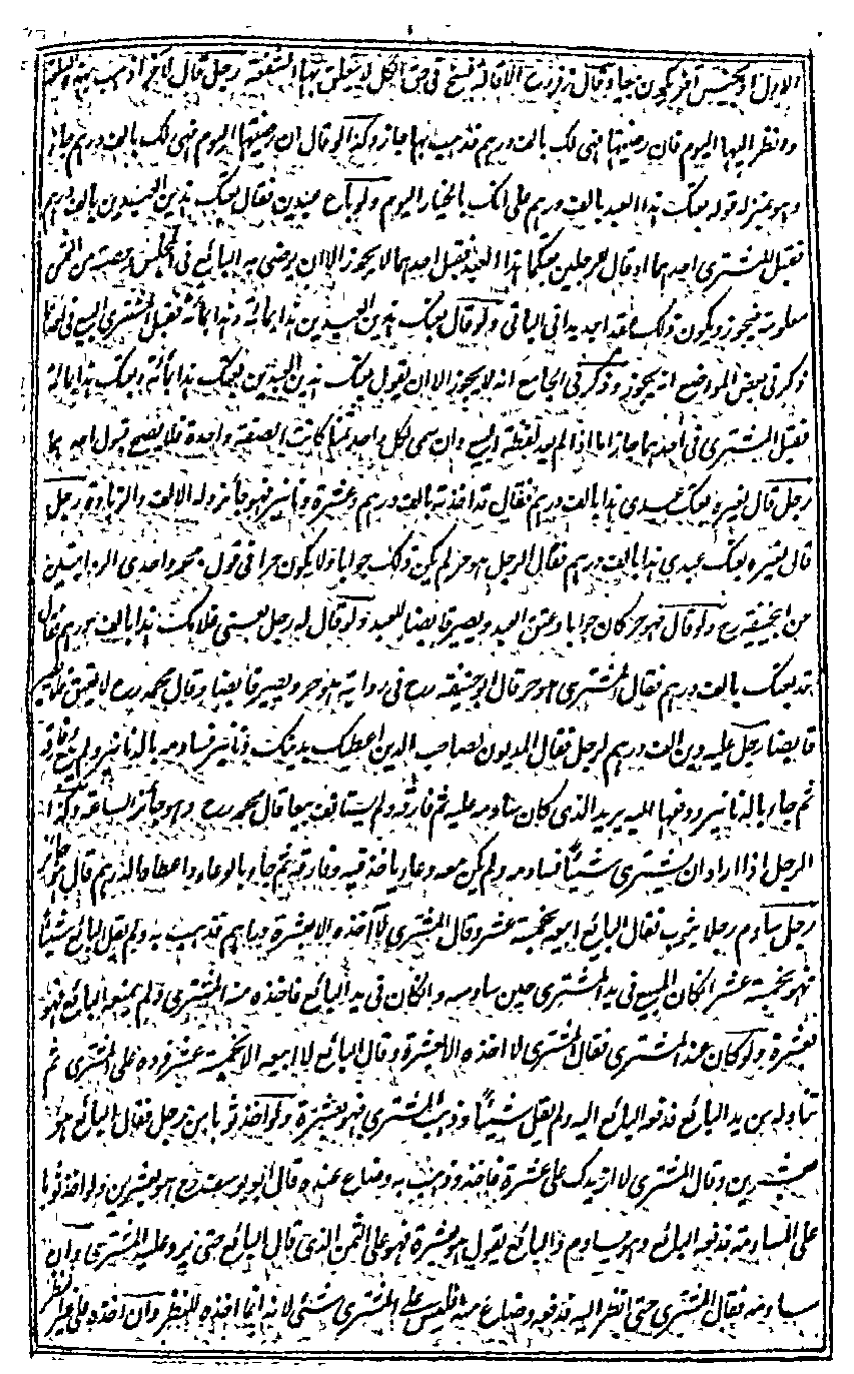 الاول او بجنس آخر يكون جا وقال زفر رح الاقالة فسخ في حق الكل لا يتعلق بها الشفعة رجل قال لآخر اذهب بهذه السلعة
وانظر اليها اليوم فان رضيتها فهي لك بالف درهم فذهب بها جاز وكذا لو قال ان رضيتها اليوم فهي لك بالف درهم جاز
وهو بمنزلة قوله بعتك هذا العبد بالف درهم على انك بالخيار اليوم ولو باع عبدين فقال بعتك هذين العبدين بالف درهم
فقبل المشترى احدهما او قال لرجلين بعتكما هذا العبد فقبل احدهما لا يجوز الا ان يرضى به البائع في المجلس وحصته من الثمن
معلومة فيجوز ويكون ذلك عقد ا جديدا في الباقي ولو قال بعتك هذين العبدين هذا بمائة وهذا بمائة فقبل المشترى البيع في احدهما
ذكر في بعض المواضع انه يجوز وذكر في الجامع انه لا يجوز الا ان يقول بعتك هذين العبدين بعتك هذا بمائة وبعتك هذا بمائة
فقبل المشترى في احدهما جاز اما اذا لم يعد لفظة البيع وان سمى لكل واحد ثمنا كانت الصفقة واحدة فلا يصح قبول احدهما
رجل قال لغيره بعتك عبدى هذا بالف درهم فقال قد اخذته بالف درهم وعشرة دنانير فهو جائز وله الالف والزيادة رجل
قال لغيره بعتك عبدى هذا بالف درهم فقال الرجل هو حر لم يكن ذلك جوابا ولا يكون حرا في قول محمد واحدى الروايتين
من ابيحنيفة رح ولو قال فهو حر كان جوابا وعتق العبد ويصير قابضا للعبد ولو قال له رجل بعتنى غلامك هذا بالف درهم فقال
قد بعتك بالف درهم فقال المشترى هو حر قال ابو حنيفة رح في رواية هو حر ويصير قابضا وقال محمد رح لا يعتق
قابضا رجل عليه دين الف درهم لرجل فقال المديون لصاحب الدين اعطيك بدينك دنانير فساومه بالدنانير ولم يقع
ثم جاء بالدنانير ودفعها اليه يريد الذى كان ساومه عليه ثم فارقه ولم يستانف بيعا قال محمد رح وهو جائز الساعة وكذا
الرجل اذا اراد ان يشترى شيئا فساومه ولم يكن معه وعاء ياخذ فيه وفارقه ثم جاء بالوعاء واعطاه الدراهم قال هو جائز
رجل ساوم رجلا بثوب فقال البائع ابيعه بخمسة عشر وقال المشترى لا آخذه الا بعشرة فذهب به ولم يقل البائع شيئا
فهو بخمسة عشر ان كان المبيع في يد المشترى حين ساومه وان كان في يد البائع فاخذه منه المشترى ولم يمنعه البائع فهو
بعشرة ولو كان عند المشترى فقال المشترى لا اخذه الا بعشرة وقال البائع لا ابيعه الا بخمسة عشر فرده على المشترى ثم
تناوله من يد البائع فدفعه البائع اليه ولم يقل شيئا وذهب المشترى فهو بعشرة ولو اخذ ثوبا من رجل فقال البائع هو
بعشرين وقال المشترى لا ازيدك على عشرة فاخذه وذهب به وضاع عنده قال ابو يوسف رح هو بعشرين ولو اخذ ثوبا
على المساومة فدفعه البائع وهو يساوم والبائع يقول هو بعشرة فهو على الثمن الذى قال البائع حتى يرد عليه المشترى وان
ساومه فقال المشترى حتى انظر اليه فدفعه وضاع منه فليس على المشترى شئى لانه انما اخذه للنظر وان اخذه على غير النظر